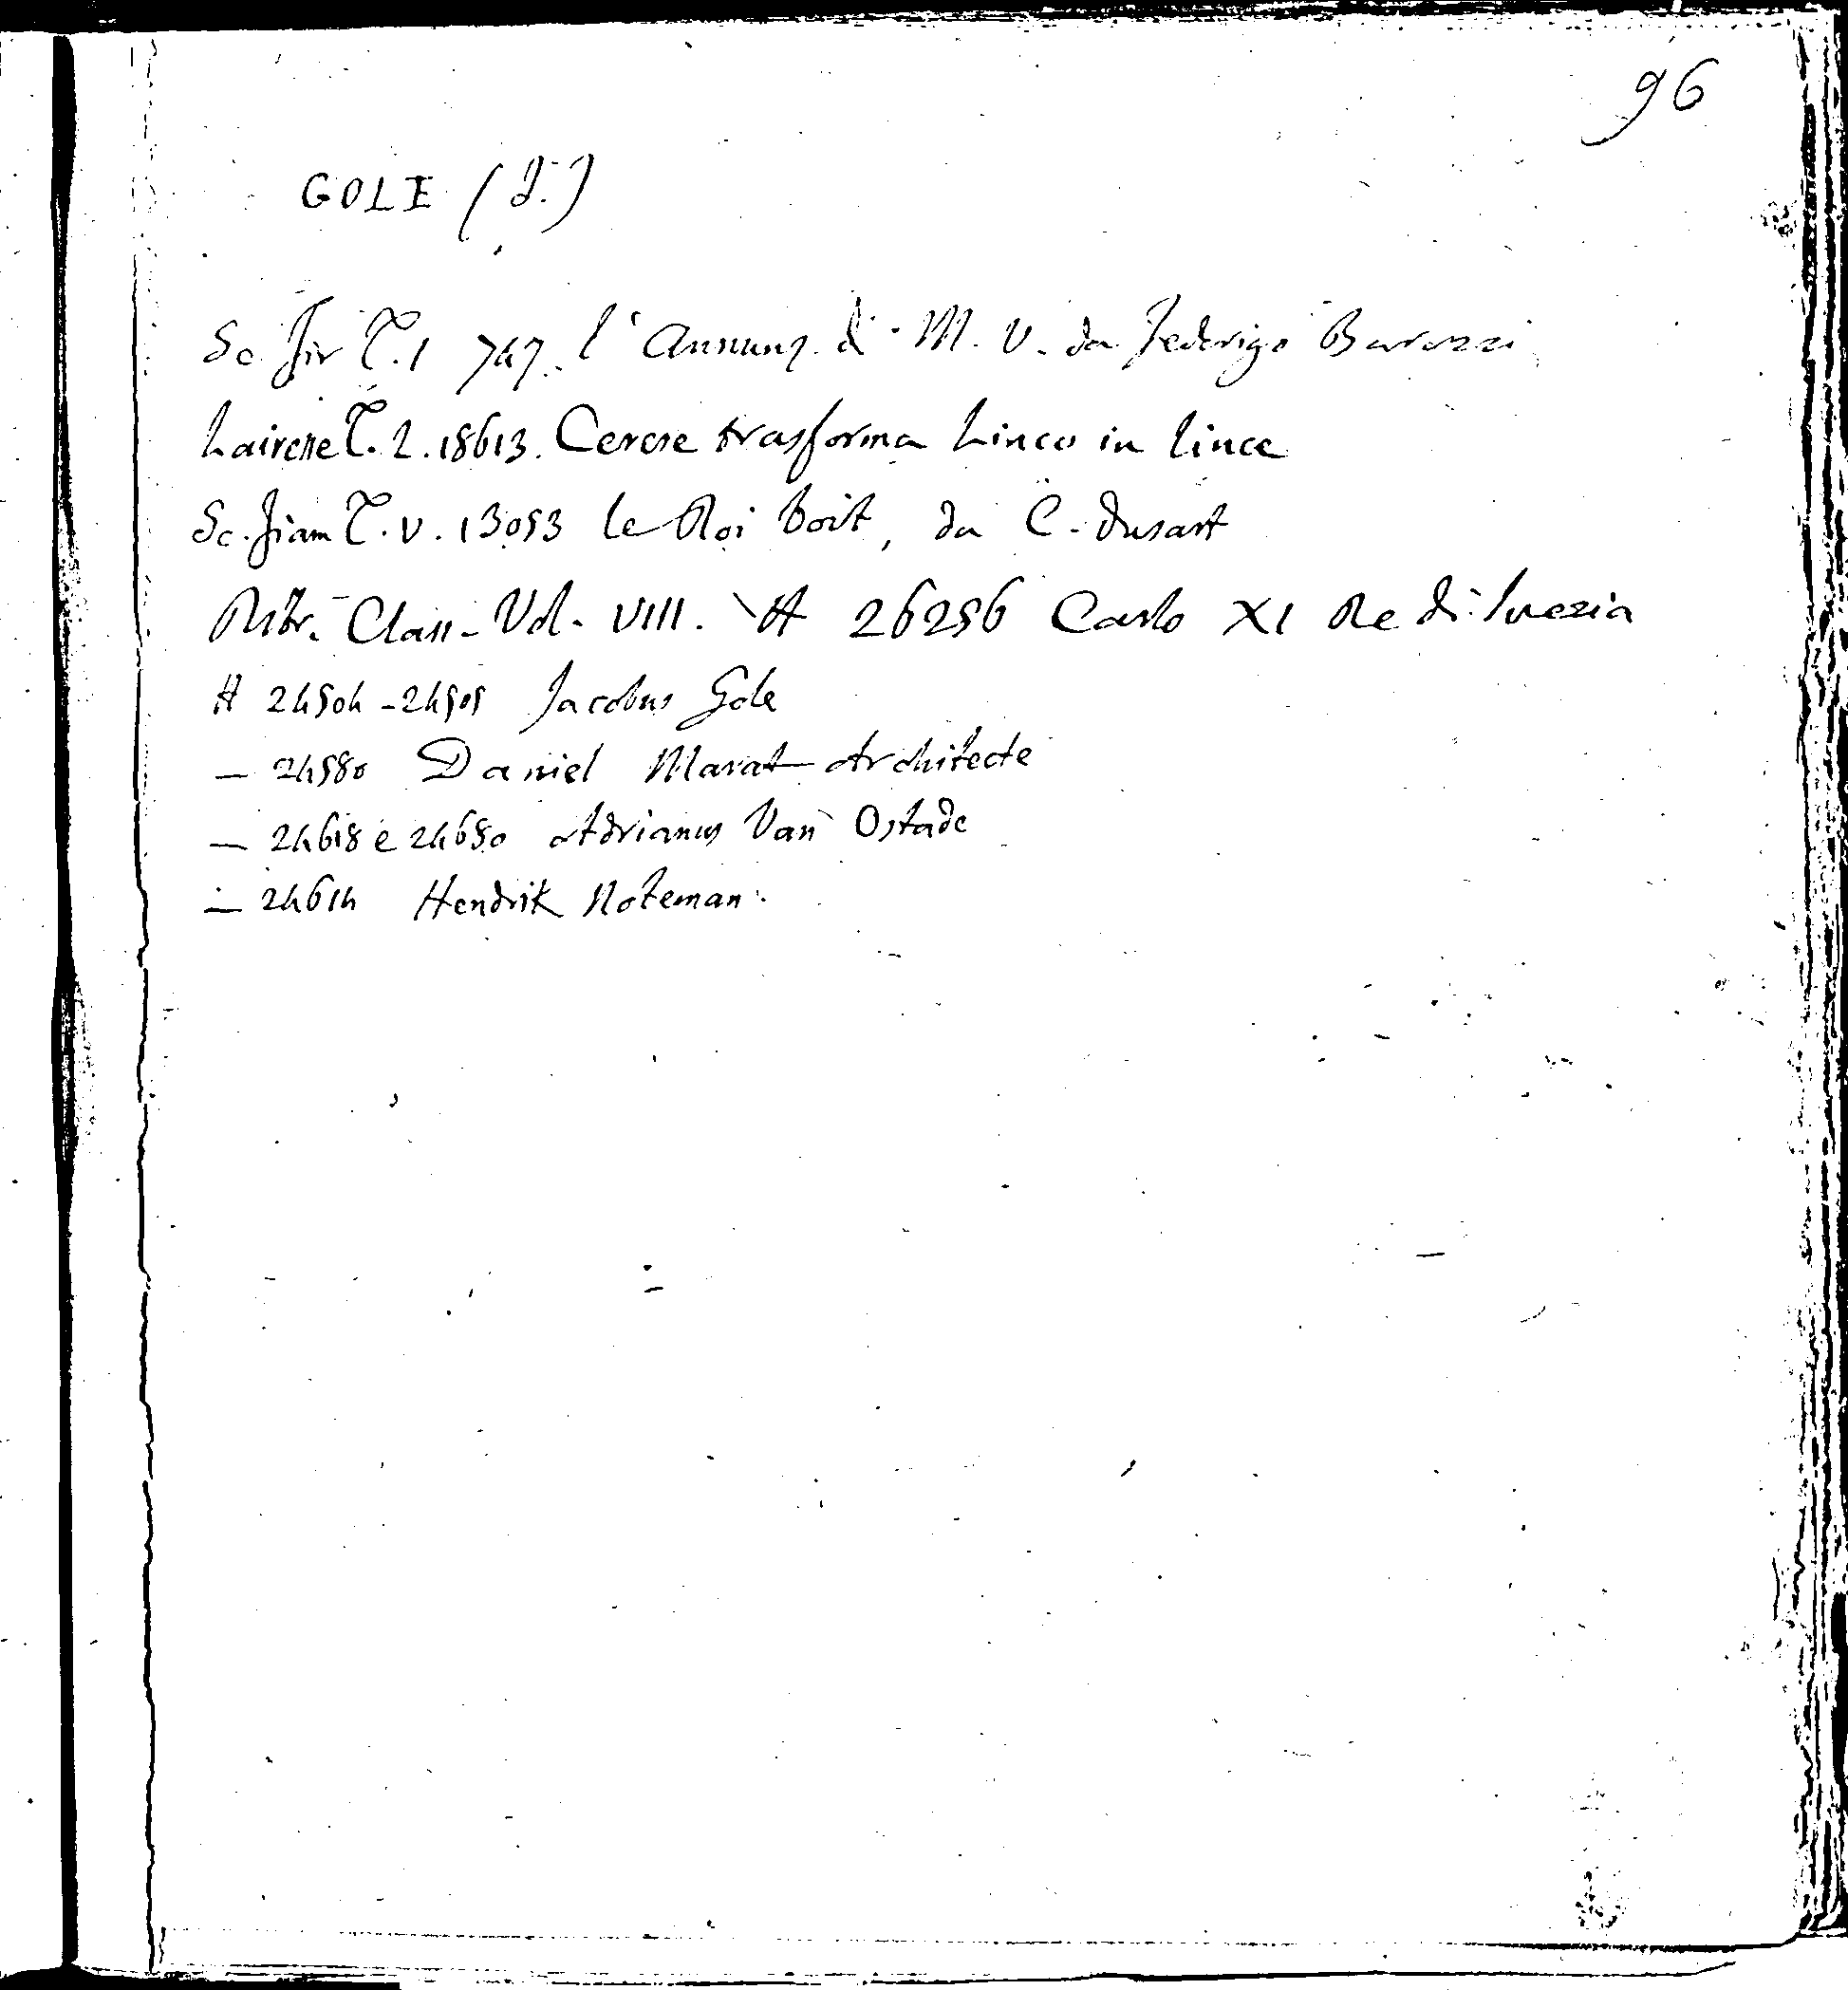 96
GOLE (J.)
Sc. Fior T. 1 747. l'Annunz. di M. V. da Federigo Barozzi
Lairesse T. 2. 18613. Cerere trasforma Linco in lince
Sc. Fiam T. V. 13053 le Roi boit, da C. Dusart
Ritr. Class. Vol. VIII. H 26256 Carlo XI Re di Svezia
H 24504 - 24505 Jacobus Gole
— 24580 Daniel Marat Architecte
— 24618 e 24680 Adrianus Van Ostade
— 24614 Hendrik Noteman.